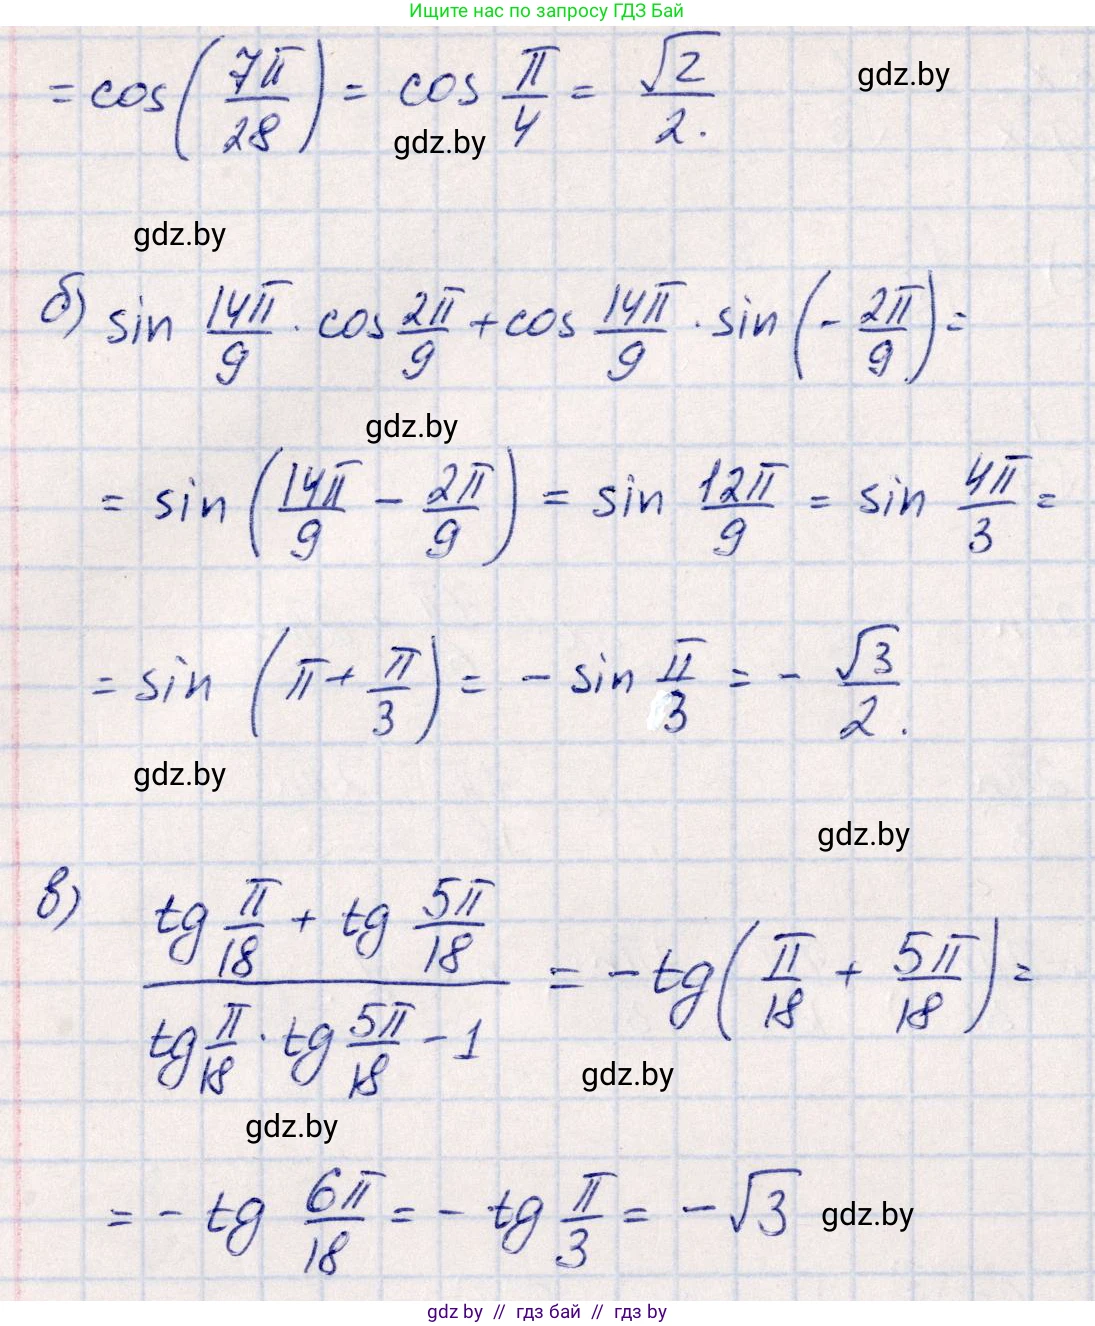 Ищите нас по запросу ГДЗ Бай
= cos(7π/28) = cos π/4 = √2/2.
gdz.by
gdz.by
gdz.by
б) sin 14π/9 · cos 2π/9 + cos 14π/9 · sin(- 2π/9) =
gdz.by
= sin(14π/9 - 2π/9) = sin 12π/9 = sin 4π/3 =
= sin (π + π/3) = - sin π/3 = - √3/2.
gdz.by
gdz.by
в) (tg π/18 + tg 5π/18)/(tg π/18 · tg 5π/18 - 1) = - tg(π/18 + 5π/18) =
gdz.by
gdz.by
= - tg 6π/18 = - tg π/3 = - √3
gdz.by
gdz by // гдз бай // гдз by